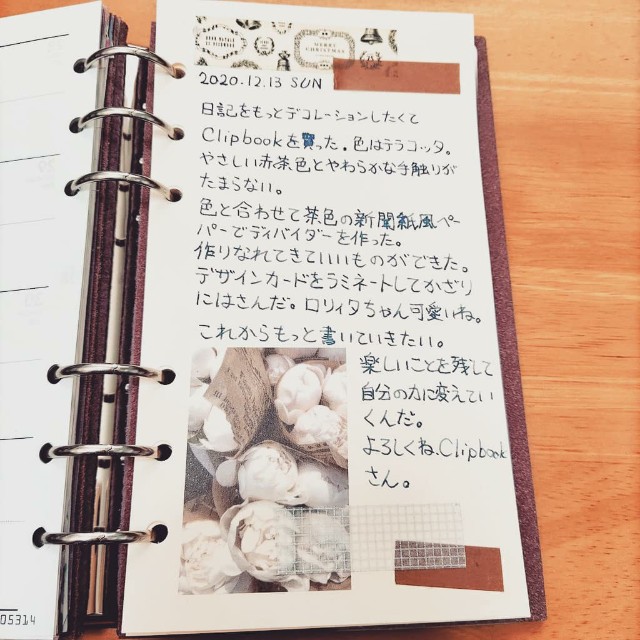 MERRY
CHRISTMAS
2020.12.13 SUN
日記をもっとデコレーションしたくて
Clipbookを買った。色はテラコッタ。
やさしい赤茶色とやわらかな手触りが
たまらない。
色と合わせて茶色の新聞紙風ペー
パーでディバイダーを作った。
作りなれてきていいものができた。
デザインカードをラミネートしてかざり
にはさんだ。ロリィタちゃん可愛いね。
これからもっと書いていきたい。
楽しいことを残して
自分の力に変えてい
くんだ。
よろしくね、Clipbook
さん。
05314